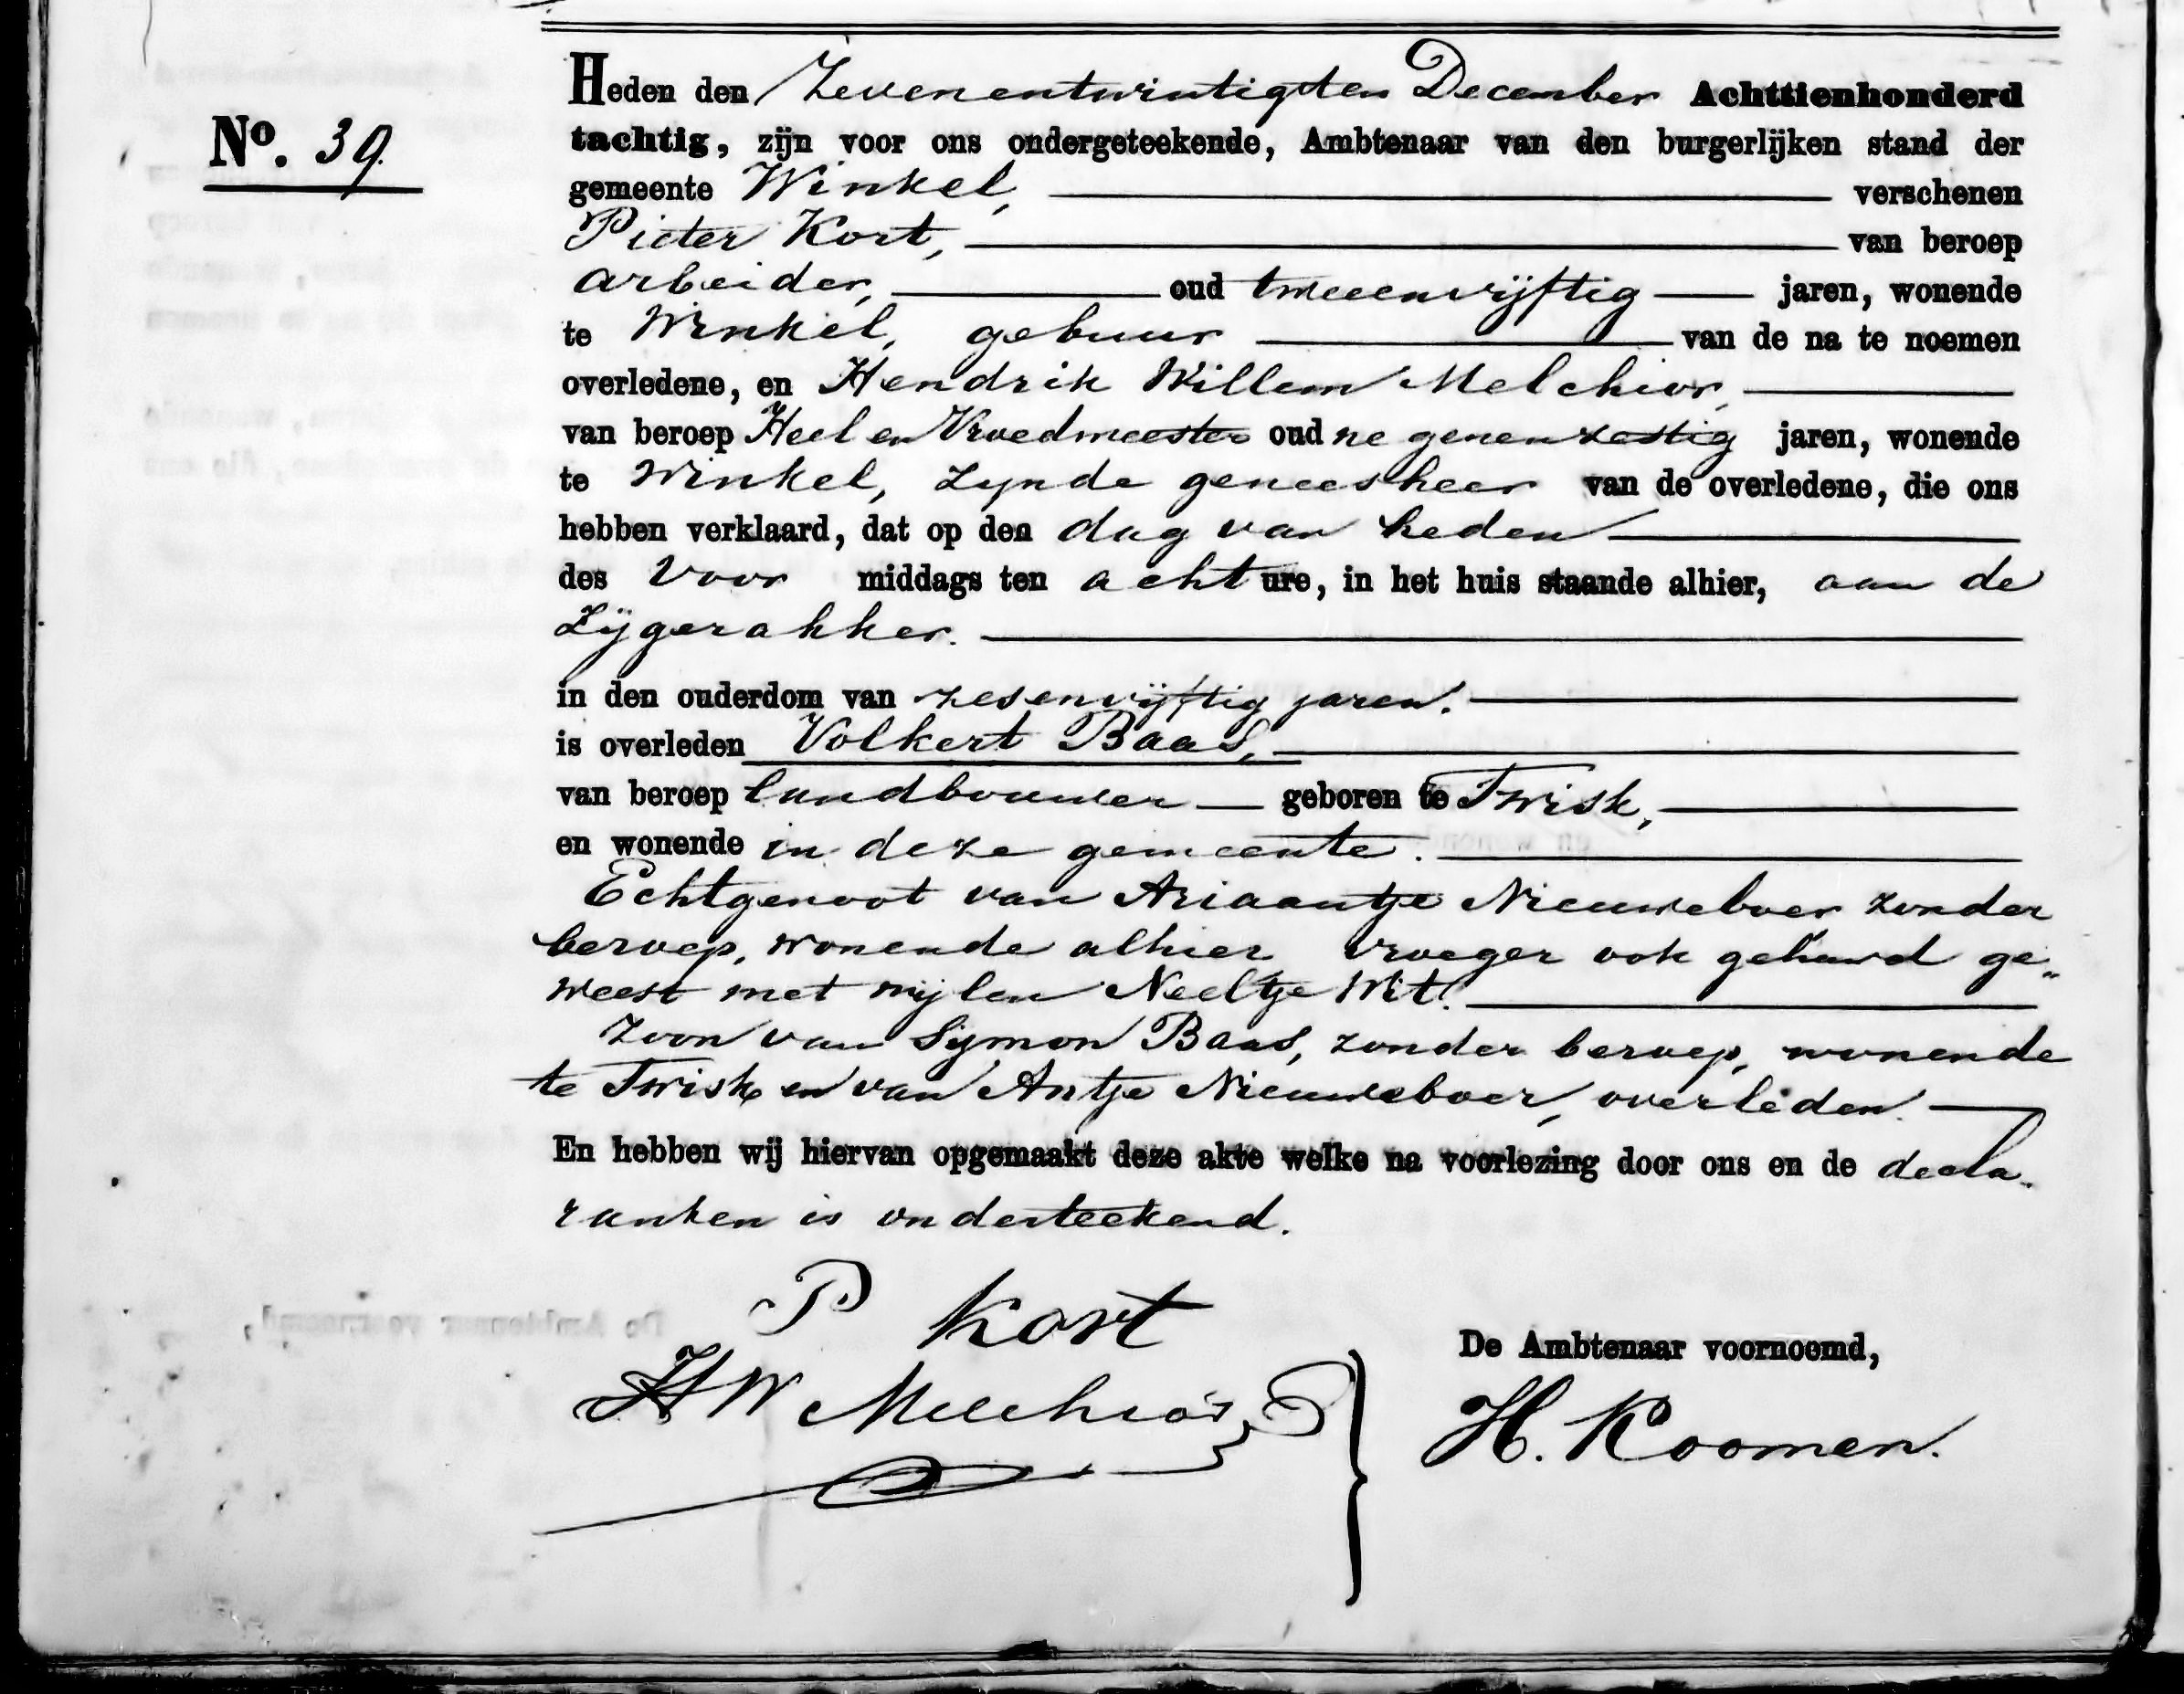 Heden den Zevenentwintigsten December Achttienhonderd
No. 39. tachtig, zijn voor ons ondergeteekende, Ambtenaar van den burgerlijken stand der
gemeente Winkel, verschenen
Pieter Kort, van beroep
arbeider, oud tweeenvijftig jaren, wonende
te Winkel, gebuur van de na te noemen
overledene, en Hendrik Willem Melchior,
van beroep Heel en Vroedmeester oud negenenzestig jaren, wonende
te Winkel, zynde geneesheer van de overledene, die ons
hebben verklaard, dat op den dag van heden
des Voor middags ten acht ure, in het huis staande alhier, aan de
Zijgerakker.
in den ouderdom van zesenvijftig jaren.
is overleden Volkert Baas,
van beroep landbouwer geboren te Twisk,
en wonende in deze gemeente.
Echtgenoot van Ariaantje Nieuweboer zonder
beroep, wonende alhier vroeger ook gehuwd ge„
weest met wijlen Neeltje Wit.
Zoon van Symon Baas, zonder beroep, wonende
te Twisk en van Antje Nieuweboer, overleden.
En hebben wij hiervan opgemaakt deze akte welke na voorlezing door ons en de decla„
ranten is onderteekend.
P Kort
De Ambtenaar voornoemd,
HW Melchior
H. Koomen.